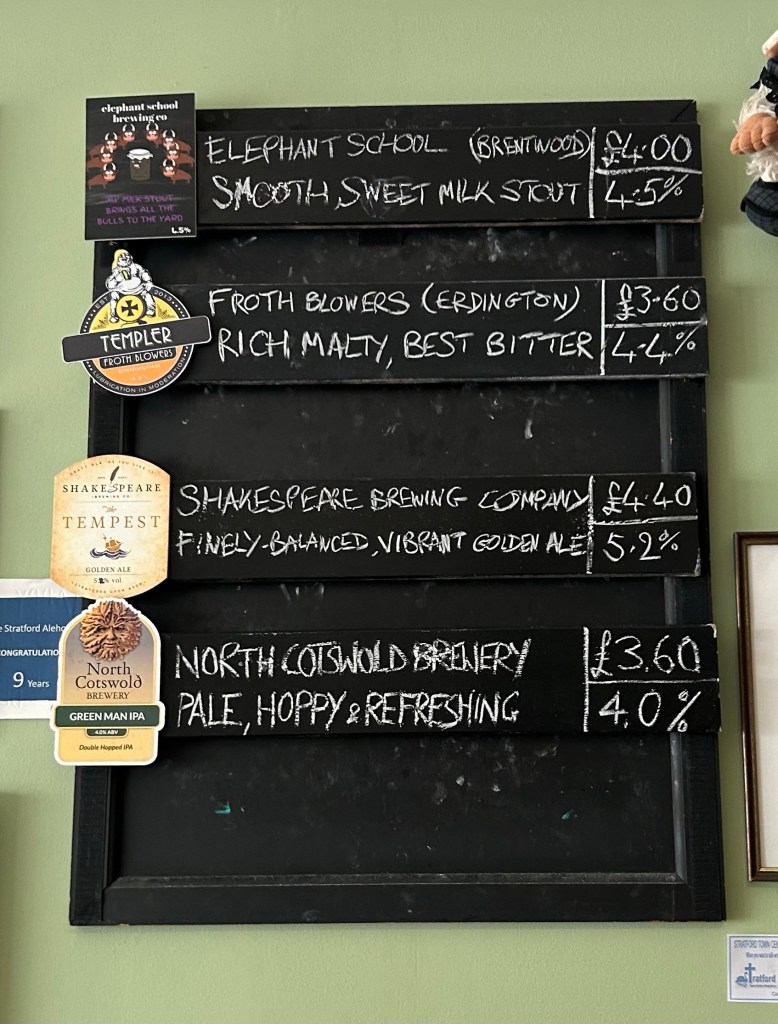 elephant school
brewing co
MY MILK STOUT
BRINGS ALL THE
BULLS TO THE YARD
4.5%
ELEPHANT SCHOOL (BRENTWOOD) £4.00
SMOOTH, SWEET MILK STOUT 4.5%
EST 2013
TEMPLER
FROTH BLOWERS
LUBRICATION IN MODERATION
FROTH BLOWERS (ERDINGTON) £3.60
RICH MALTY, BEST BITTER 4.4%
SHAKESPEARE
BREWING CO.
The
TEMPEST
GOLDEN ALE
% vol.
SHAKESPEARE BREWING COMPANY £4.40
FINELY-BALANCED, VIBRANT GOLDEN ALE 5.2%
e Stratford Aleho
ONGRATULATIO
9 Years
North
Cotswold
BREWERY
GREEN MAN IPA
4.0% ABV
Double Hopped IPA
NORTH COTSWOLD BREWERY £3.60
PALE, HOPPY & REFRESHING 4.0%
STRATFORD TOWN CE
tratford